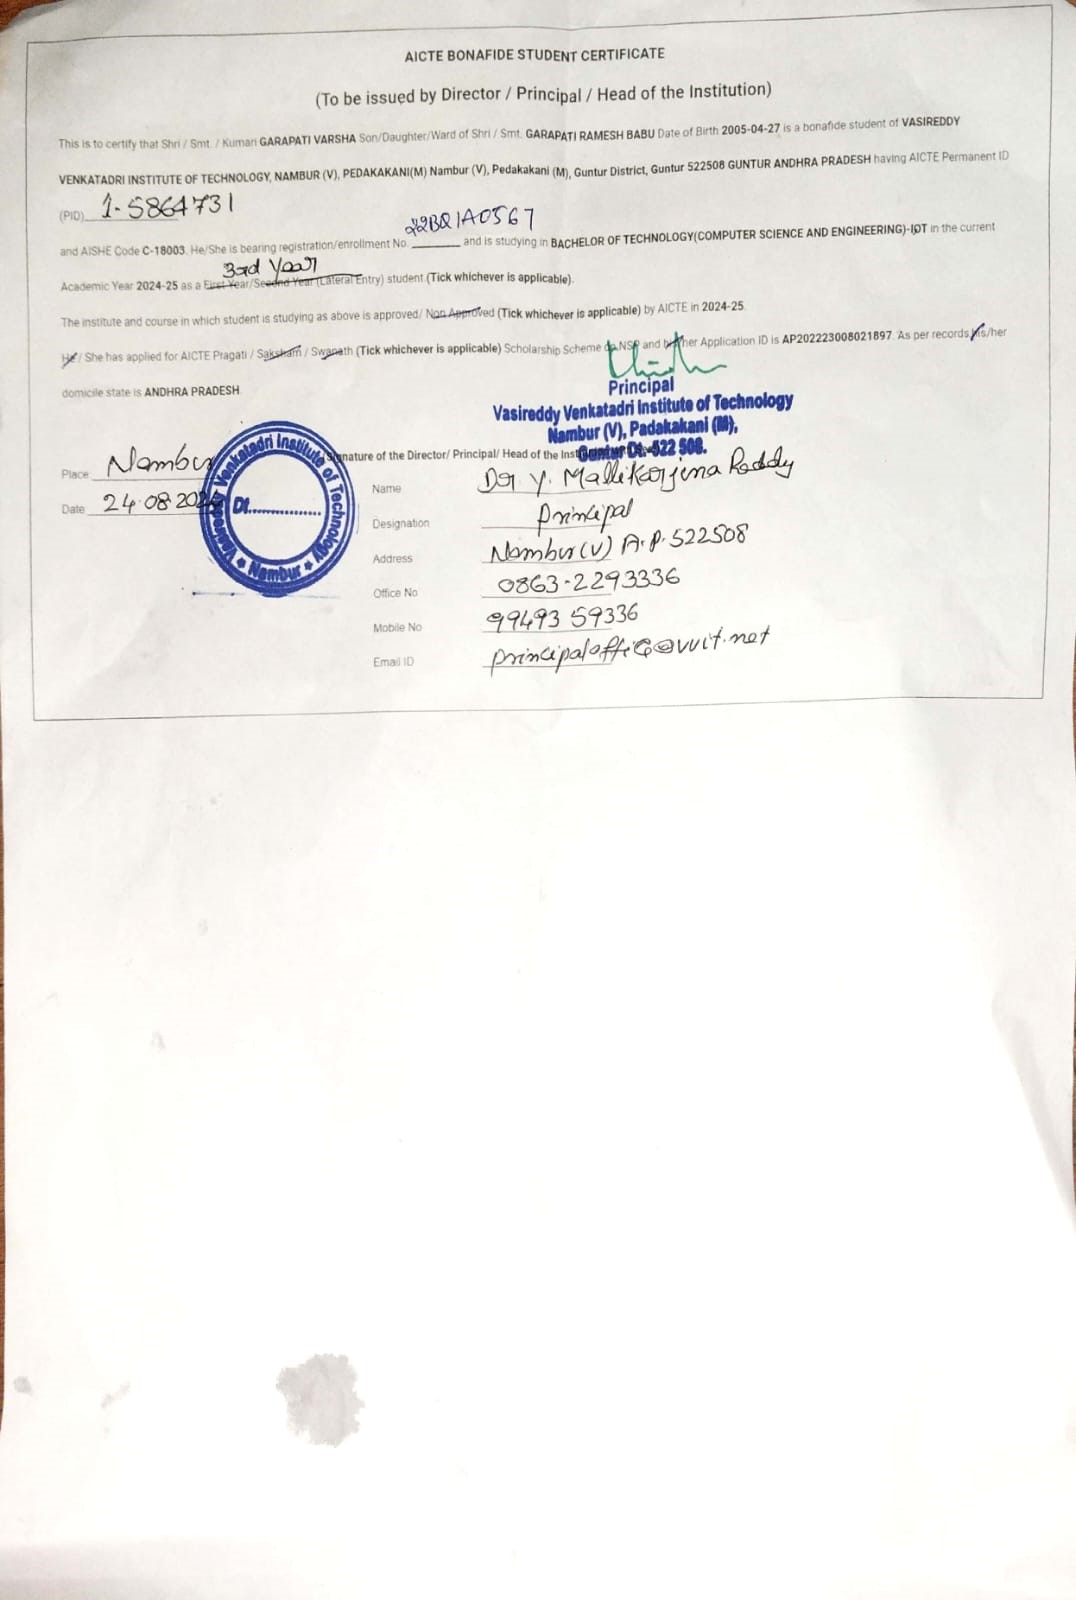 AICTE BONAFIDE STUDENT CERTIFICATE
(To be issued by Director / Principal / Head of the Institution)
This is to certify that Shri / Smt. / Kumari GARAPATI VARSHA Son/Daughter/Ward of Shri / Smt. GARAPATI RAMESH BABU Date of Birth 2005-04-27 is a bonafide student of VASIREDDY
VENKATADRI INSTITUTE OF TECHNOLOGY, NAMBUR (V), PEDAKAKANI(M) Nambur (V), Pedakakani (M), Guntur District, Guntur 522508 GUNTUR ANDHRA PRADESH having AICTE Permanent ID
(PID) 1-5864731
22BQ1A0567
and AISHE Code C-18003. He/She is bearing registration/enrollment No. ________ and is studying in BACHELOR OF TECHNOLOGY(COMPUTER SCIENCE AND ENGINEERING)-IOT in the current
3rd Year
Academic Year 2024-25 as a First Year/Second Year (Lateral Entry) student (Tick whichever is applicable).
The institute and course in which student is studying as above is approved/ Non Approved (Tick whichever is applicable) by AICTE in 2024-25.
He / She has applied for AICTE Pragati / Saksham / Swanath (Tick whichever is applicable) Scholarship Scheme on NSP and his/her Application ID is AP202223008021897. As per records his/her
domicile state is ANDHRA PRADESH.
Principal
Vasireddy Venkatadri Institute of Technology
Nambur (V), Padakakani (M),
Guntur Dt.-522 508.
Signature of the Director/ Principal/ Head of the
Place Nambur
Date 24.08.202
Vasireddy Venkatadri Institute of Technology
Dt..............
★ Nambur ★
Name Dr Y. Mallikarjuna Reddy
Designation Principal
Address Nambur(V) A.P. 522508
Office No 0863-2293336
Mobile No 99493 59336
Email ID principaloffice@vvit.net